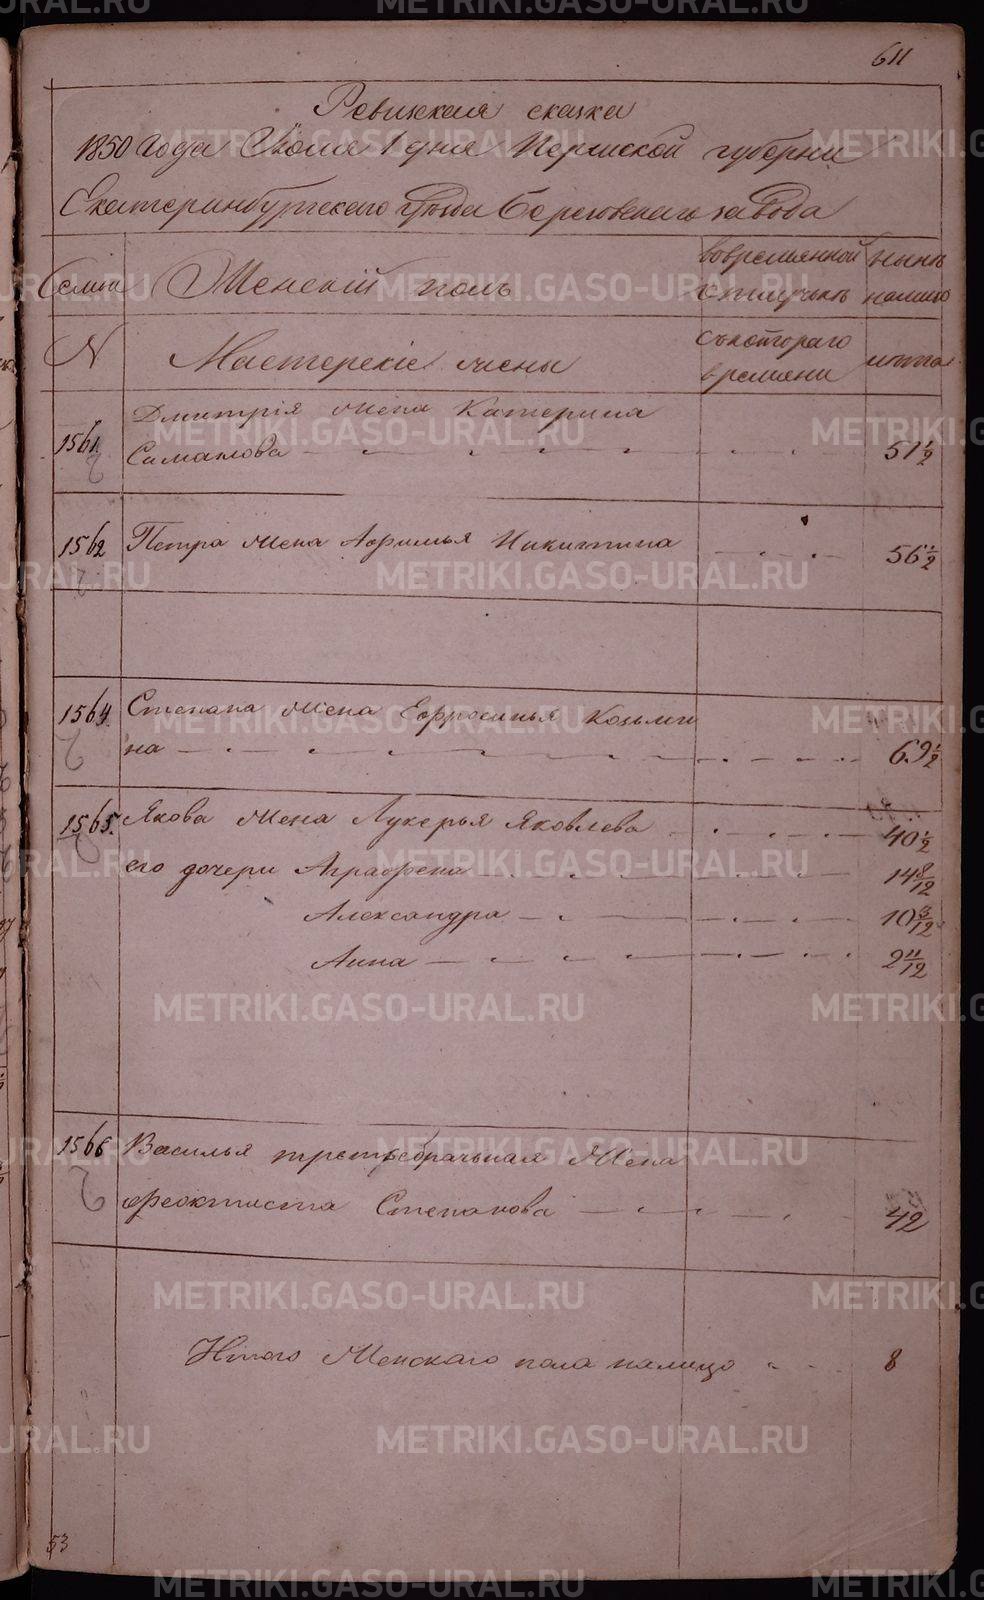 611
Ревизская сказка
1850 года Июля 1 дня Пермской губернии
Екатеринбургского уезда Березовского завода
Семьи Женскій полъ вовременной отлучкѣ ныне налицо
N Мастерскіе жены съкотораго времени лѣта
1561 Дмитрія жена Катерина
Симакова 51 1/2
1562 Петра жена Афимья Никитина 56 1/2
1564 Степана жена Ефросинья Козьми
на 69 1/2
1565. Якова жена Лукерья Яковлева 40 1/2
его дочери Аграфена 14 8/12
Александра 10 3/12
Анна 2 11/12
1566 Василья третьебрачная жена
феоктиста Степанова 42
Итого Женскаго пола налицо 8
53
METRIKI.GASO-URAL.RU